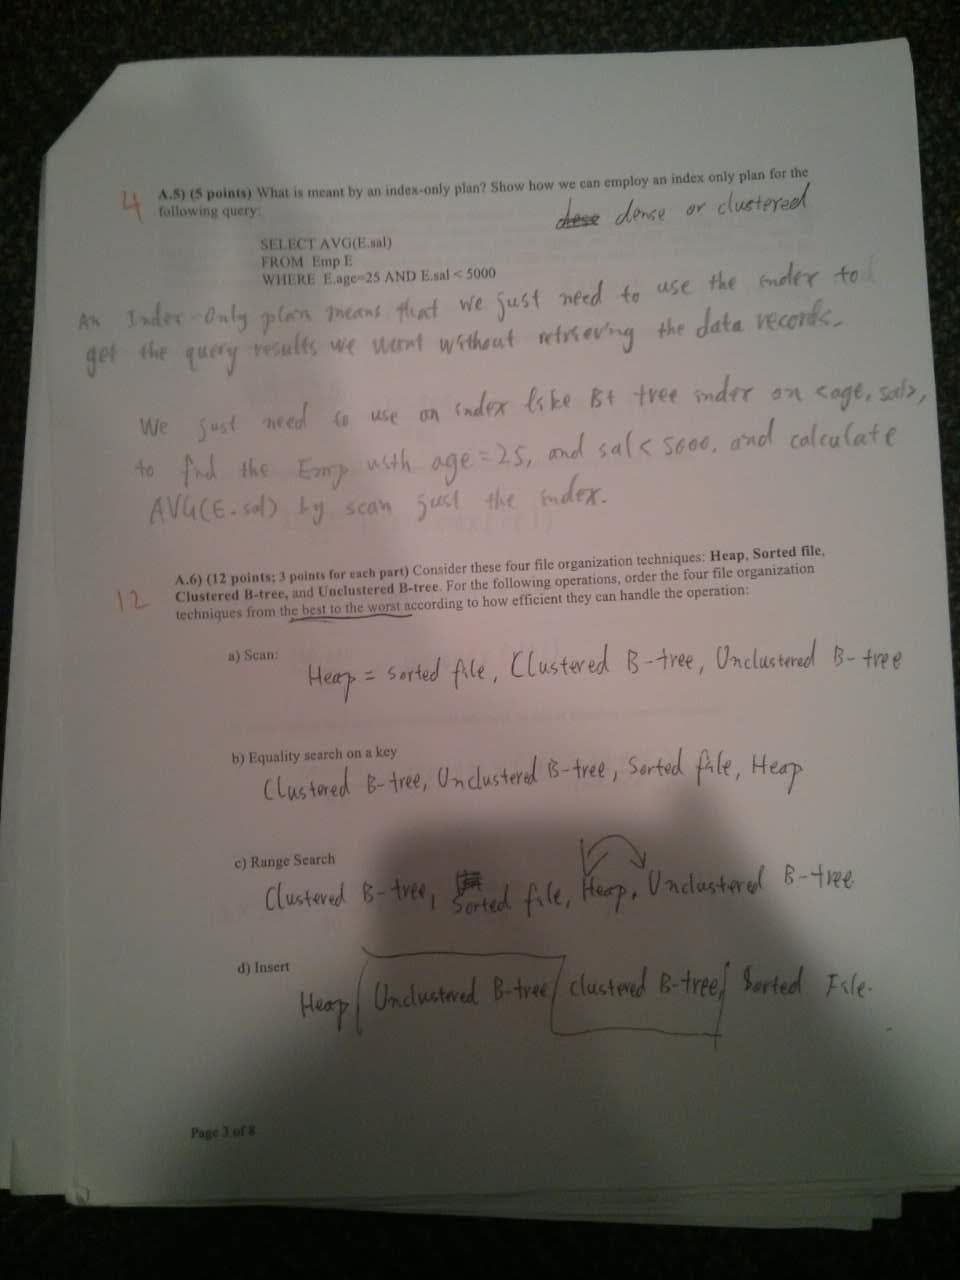 4
A.5) (5 points) What is meant by an index-only plan? Show how we can employ an index only plan for the
following query:
dense or clustered
SELECT AVG(E.sal)
FROM Emp E
WHERE E.age=25 AND E.sal < 5000
An Index-Only plan means that we just need to use the index to
get the query results we want without retrieving the data records.
We just need to use an index like B+ tree index on <age, sal>,
to find the Emp with age = 25, and sal < 5000, and calculate
AVG(E.sal) by scan just the index.
12
A.6) (12 points; 3 points for each part) Consider these four file organization techniques: Heap, Sorted file,
Clustered B-tree, and Unclustered B-tree. For the following operations, order the four file organization
techniques from the best to the worst according to how efficient they can handle the operation:
a) Scan:
Heap = sorted file, Clustered B-tree, Unclustered B-tree
b) Equality search on a key
Clustered B-tree, Unclustered B-tree, Sorted file, Heap
c) Range Search
Clustered B-tree, Sorted file, Heap, Unclustered B-tree
d) Insert
Heap Unclustered B-tree clustered B-tree, Sorted File.
Page 3 of 8